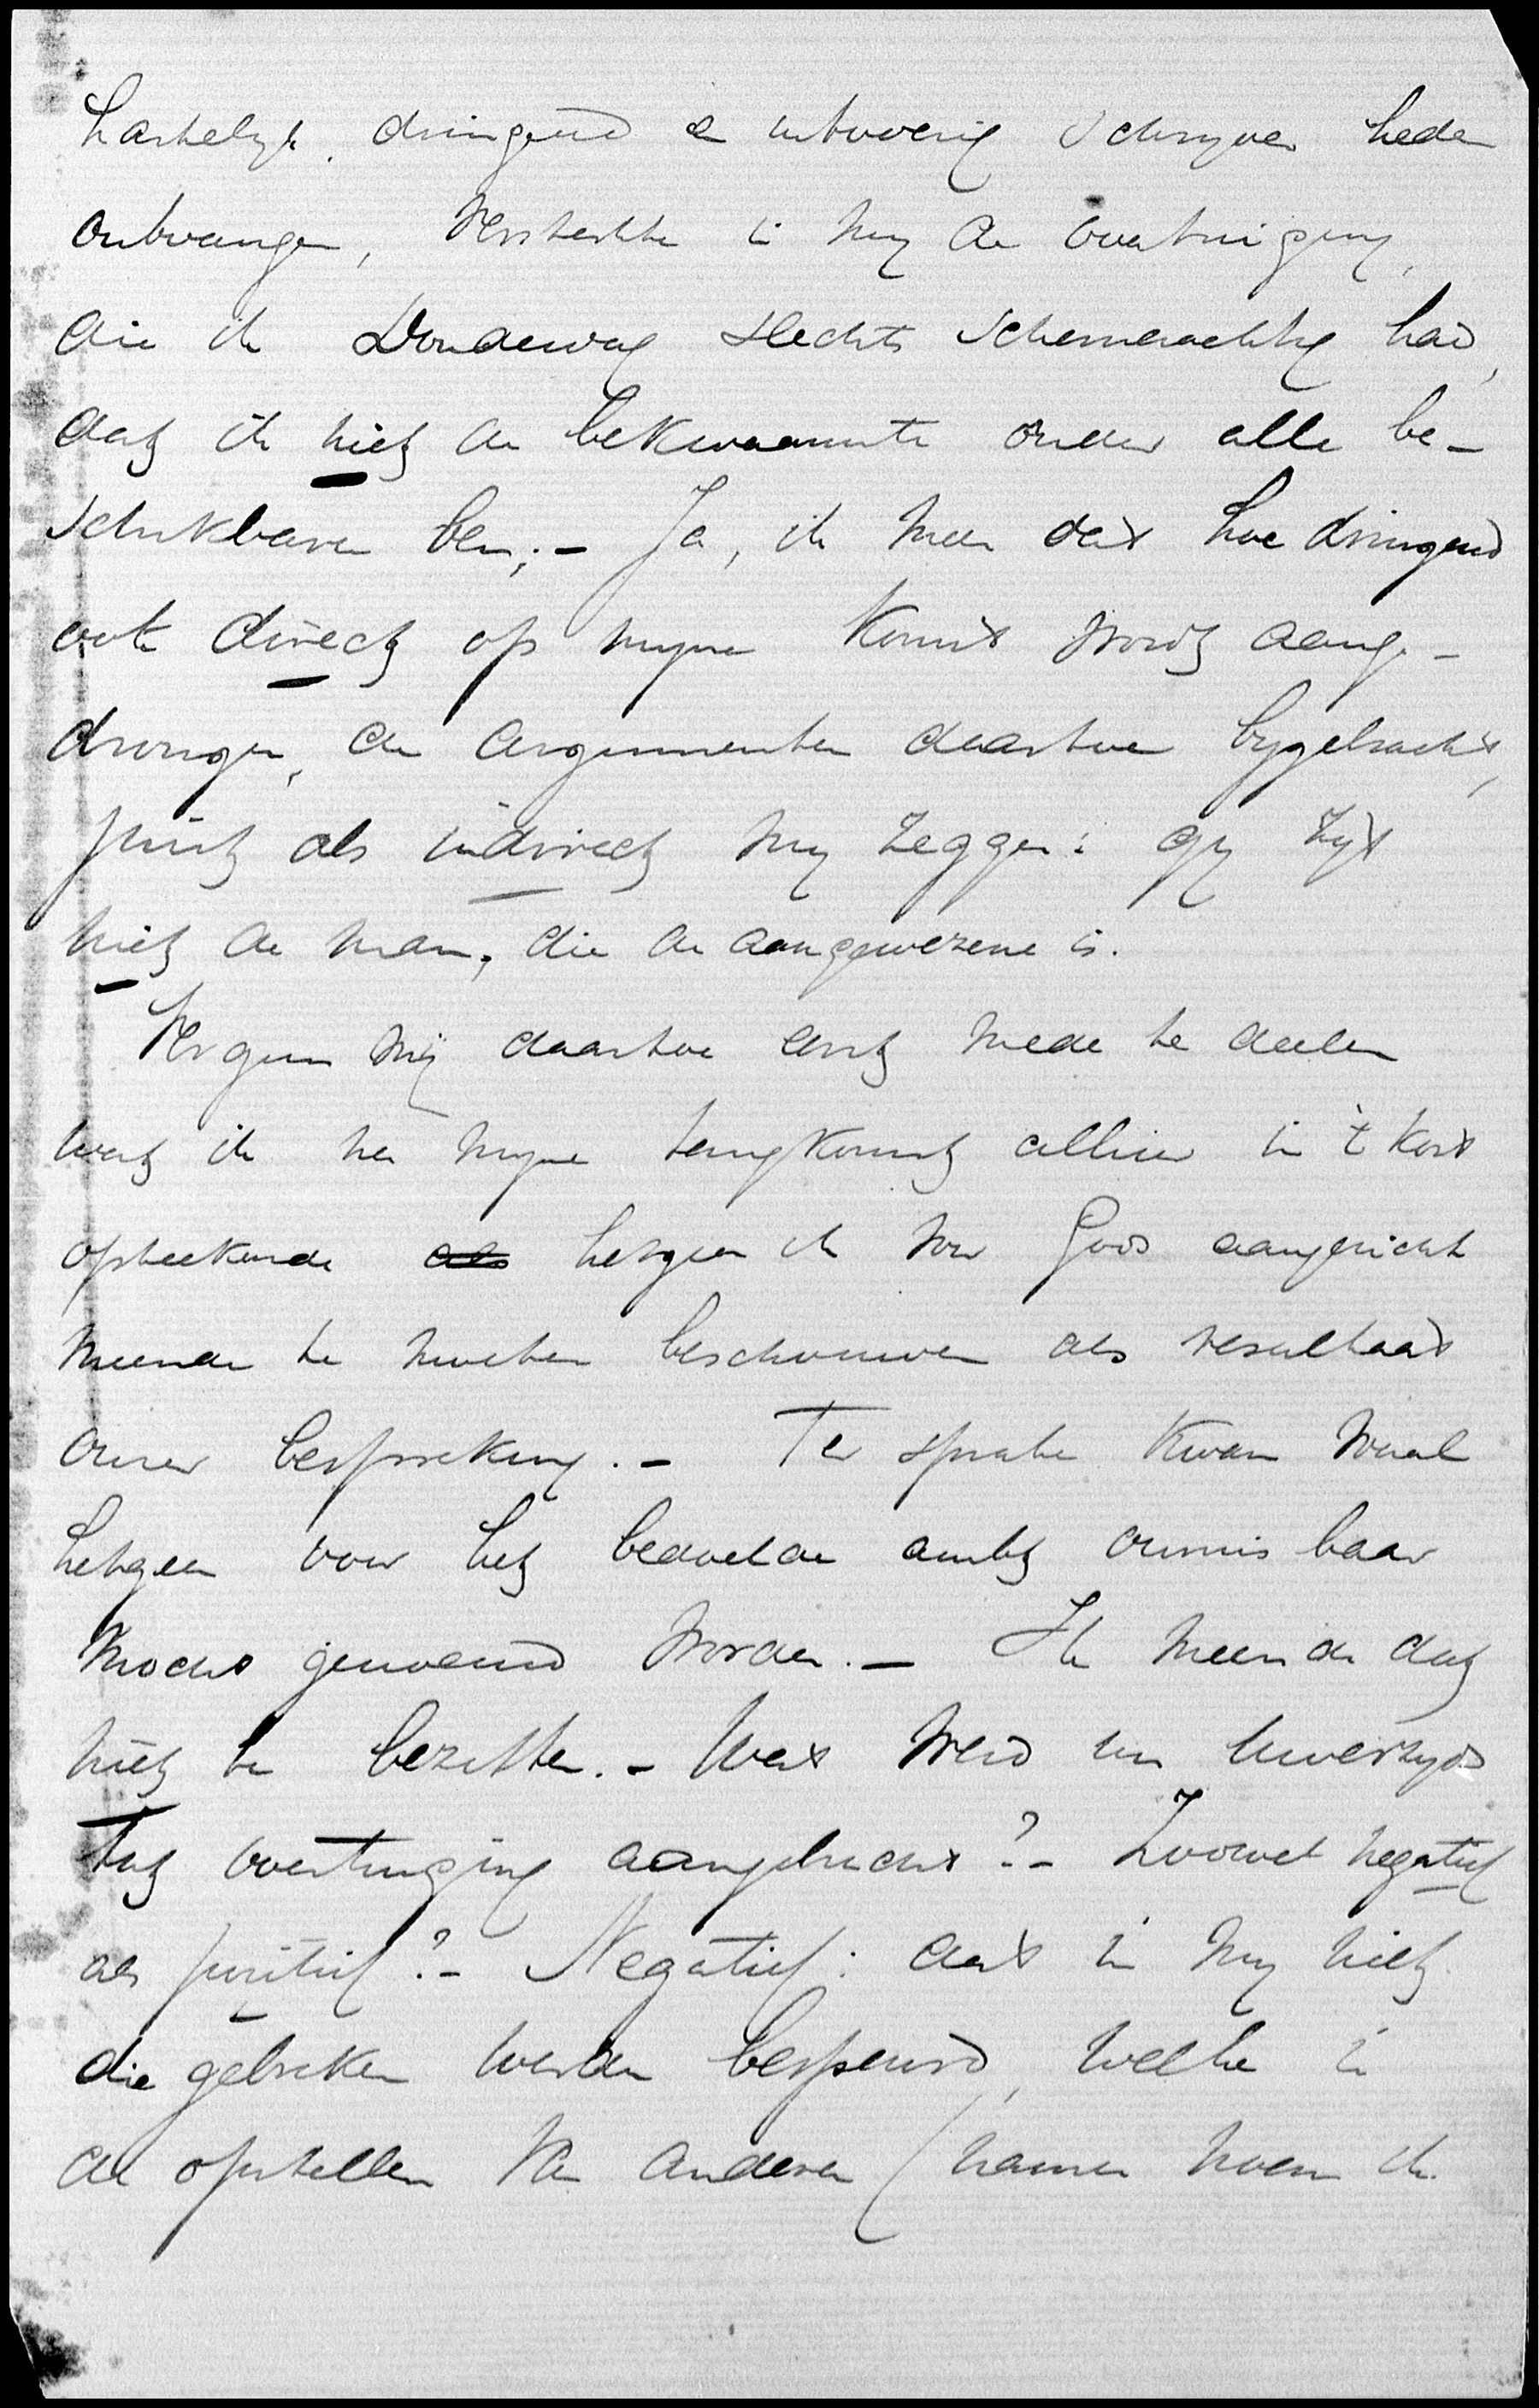 hartelijk, dringend en uitvoerig schrijven heden
ontvangen, versterkte in mij de overtuiging,
die ik Donderdag slechts schemerachtig had,
dat ik niet de bekwaamste onder alle be-
schikbaren ben; - Ja, ik meen dat hoe dringend
ook direct op mijne komst wordt aange-
drongen, de argumenten daartoe bygebracht,
juist als indirect mij zeggen: gij zijt
niet de man, die de aangewezene is.
Vergun mij daartoe eerst mede te deelen
wat ik na mijne terugkomst alhier in 't kort
opteekende als hetgeen ik voor Gods aangezicht
meende te moeten beschouwen als resultaat
onzer bespreking. - Ter sprake kwam veel
hetgeen voor het bedoelde ambt onmisbaar
mocht genoemd worden. - Ik meende dat
niet te bezitten. - Wat werd nu Uwerzyds
tot overtuiging aangebracht? - Zoowel negatief
als positief? - Negatief: dat in mij niet
die gebreken werden bespeurd, welke in
de opstellen van anderen (namen noem ik